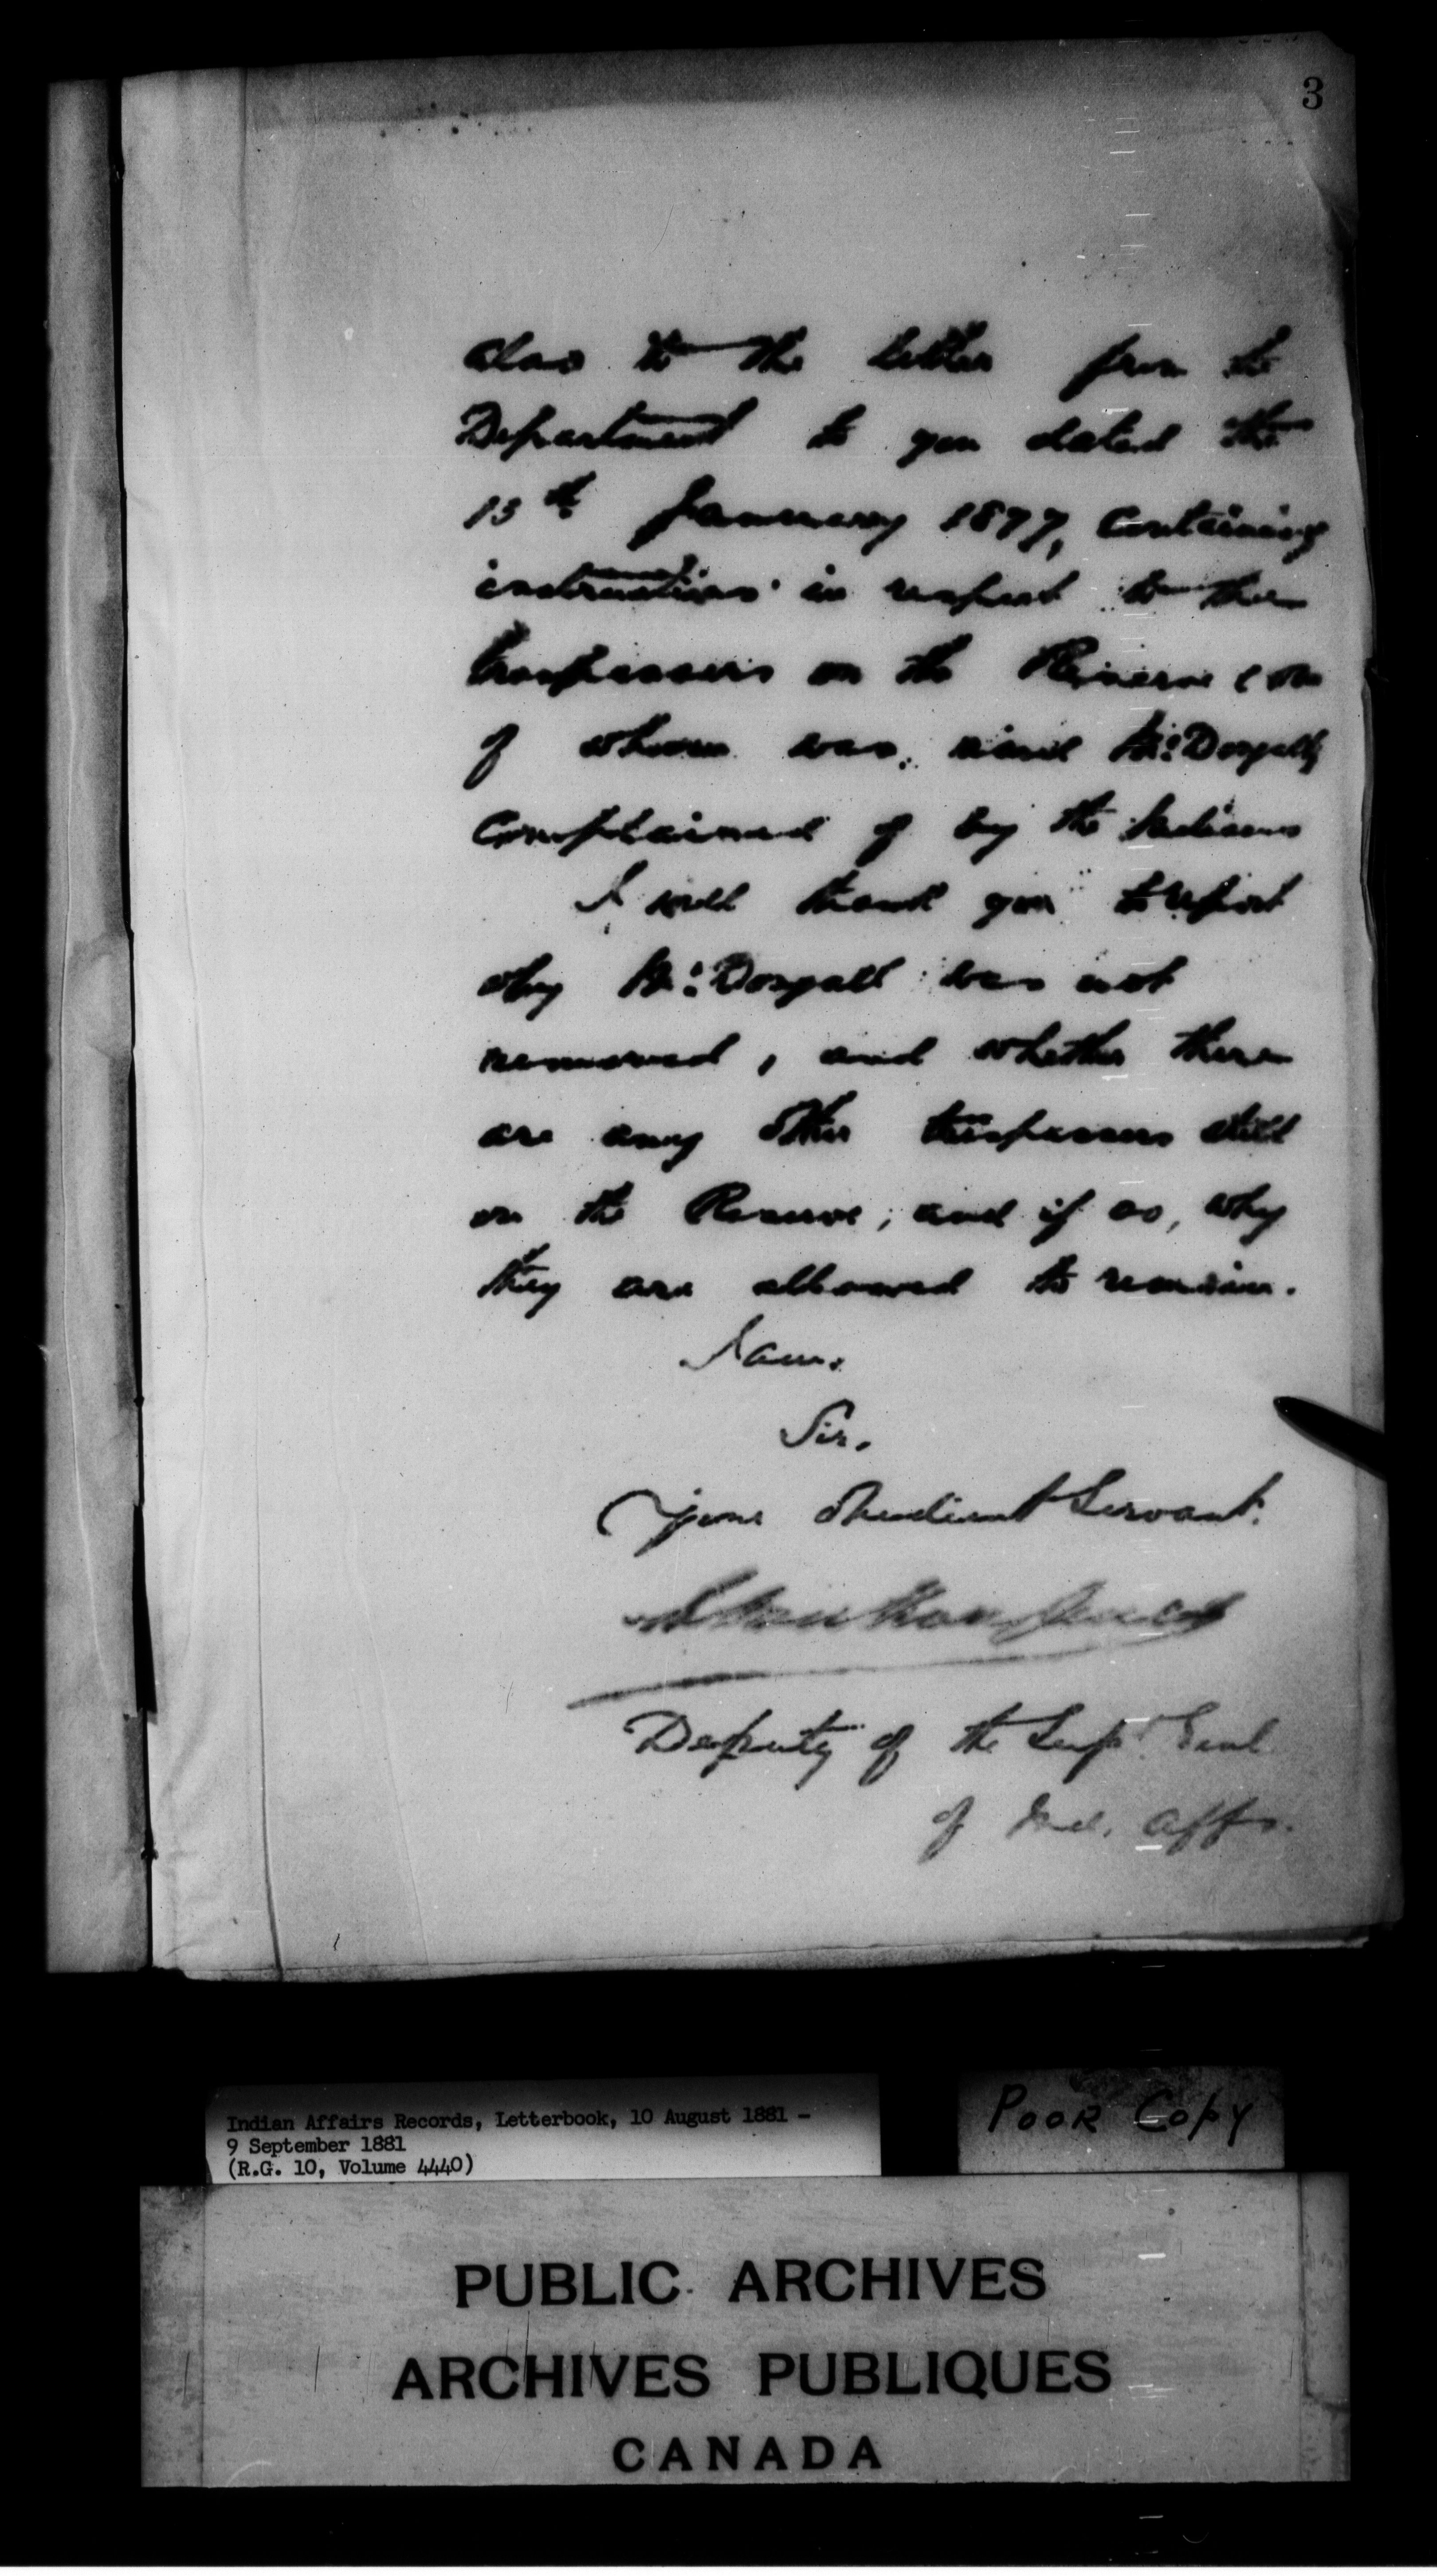 3
also to the letter from the
Department to you dated the
13th January 1877, containing
instructions in respect to the
trespassers on the Reserve (one
of whom was said McDougall)
complained of by the Indians
I will thank you to report
why McDougall was not
removed, and whether there
are any other trespassers still
on the Reserve; and if so, why
they are allowed to remain.
I am,
Sir,
Your obedient Servant.
Deputy of the Supt. Genl
of Ind. Affs.
Indian Affairs Records, Letterbook, 10 August 1881 -
9 September 1881
(R.G. 10, Volume 4440)
POOR COPY
PUBLIC ARCHIVES
ARCHIVES PUBLIQUES
CANADA